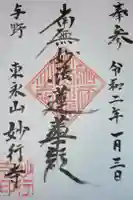 奉参
令和二年一月三日
南無妙法蓮華経
与野
東永山妙行寺